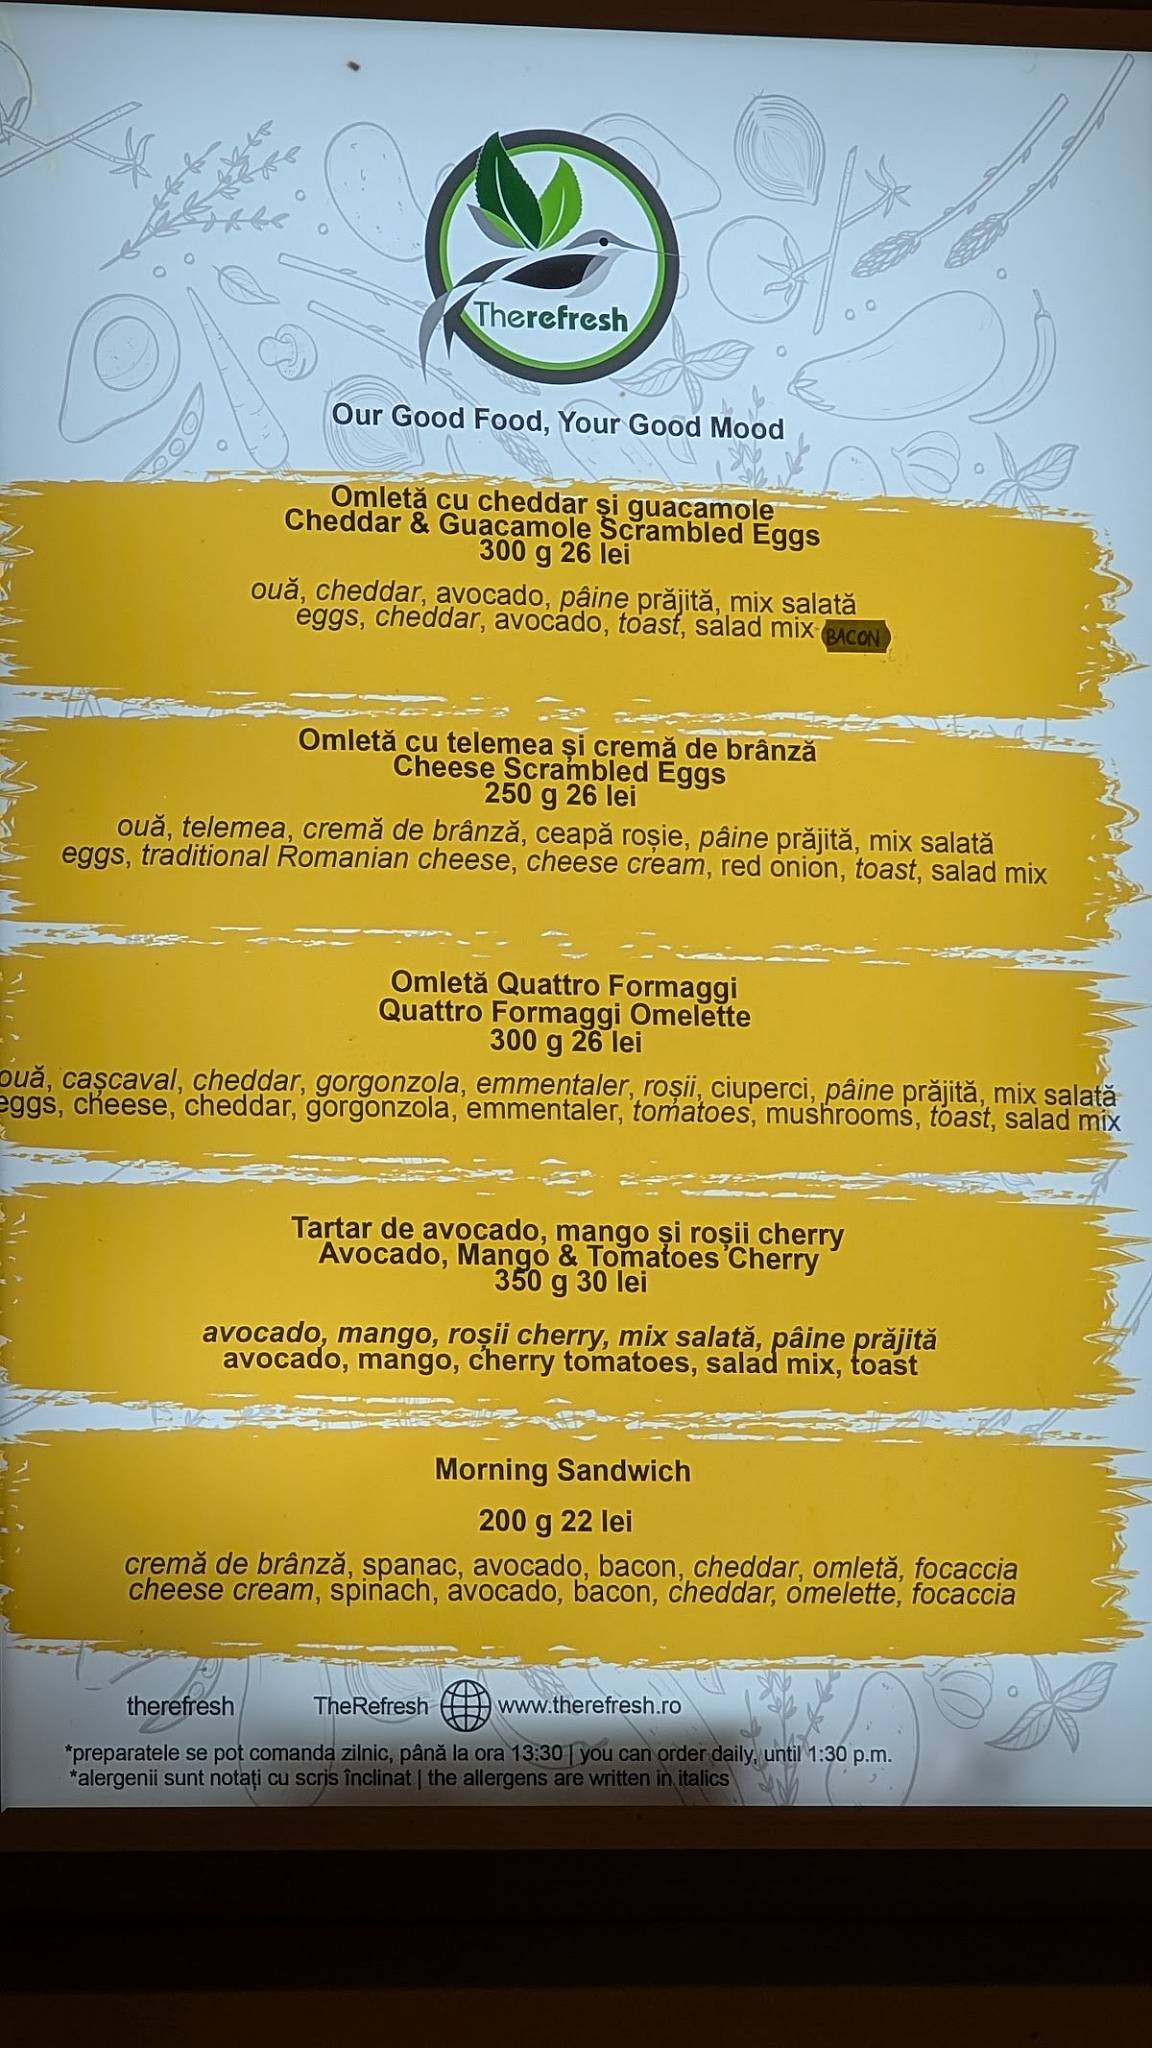 Therefresh
Our Good Food, Your Good Mood
Omletă cu cheddar și guacamole
Cheddar & Guacamole Scrambled Eggs
300 g 26 lei
ouă, cheddar, avocado, pâine prăjită, mix salată
eggs, cheddar, avocado, toast, salad mix BACON
Omletă cu telemea și cremă de brânză
Cheese Scrambled Eggs
250 g 26 lei
ouă, telemea, cremă de brânză, ceapă roșie, pâine prăjită, mix salată
eggs, traditional Romanian cheese, cheese cream, red onion, toast, salad mix
Omletă Quattro Formaggi
Quattro Formaggi Omelette
300 g 26 lei
ouă, cașcaval, cheddar, gorgonzola, emmentaler, roșii, ciuperci, pâine prăjită, mix salată
eggs, cheese, cheddar, gorgonzola, emmentaler, tomatoes, mushrooms, toast, salad mix
Tartar de avocado, mango și roșii cherry
Avocado, Mango & Tomatoes Cherry
350 g 30 lei
avocado, mango, roșii cherry, mix salată, pâine prăjită
avocado, mango, cherry tomatoes, salad mix, toast
Morning Sandwich
200 g 22 lei
cremă de brânză, spanac, avocado, bacon, cheddar, omletă, focaccia
cheese cream, spinach, avocado, bacon, cheddar, omelette, focaccia
therefresh TheRefresh www.therefresh.ro
*preparatele se pot comanda zilnic, până la ora 13:30 | you can order daily, until 1:30 p.m.
*alergenii sunt notați cu scris înclinat | the allergens are written in italics